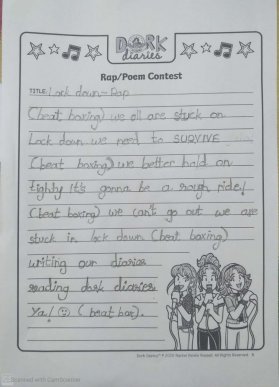 DORK
diaries
Rap/Poem Contest
TITLE: Lock down-Rap
(beat boxing) we all are stuck on
Lock down we need to SURVIVE
(beat boxing) we better hold on
tighly It's gonna be a rough ride!
(beat boxing) we can't go out we are
stuck in lock down (beat boxing)
writing our diaries
reading dork diaries
Ya! (beat box).
Scanned with CamScanner